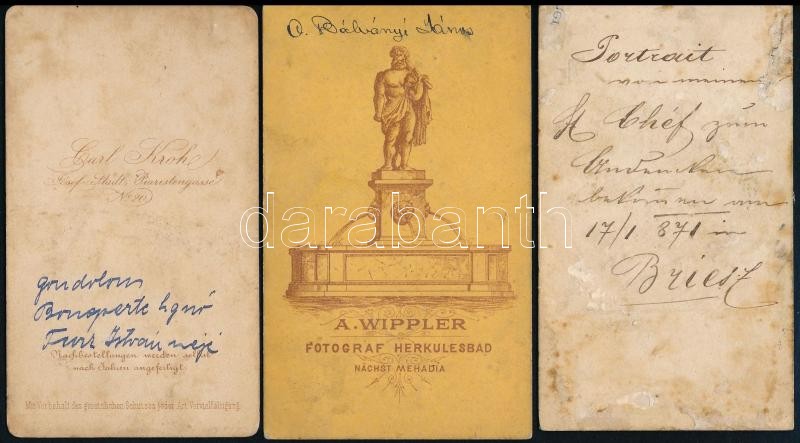 Carl Kroh
Josefstadt, Piaristengasse
No 20
gondolom
Bonaparte
István
Nachbestellungen werden selbst
nach Jahren angefertigt.
Mit Vorbehalt des gesetzlichen Schutzes jeder Art Vervielfältigung.
A. Bálványi János
A. WIPPLER
FOTOGRAF HERKULESBAD
NÄCHST MEHADIA
Portrait
von meinem
Chéf zum
Andenken
bekommen am
17/1 871 in
Briesz
darabanth